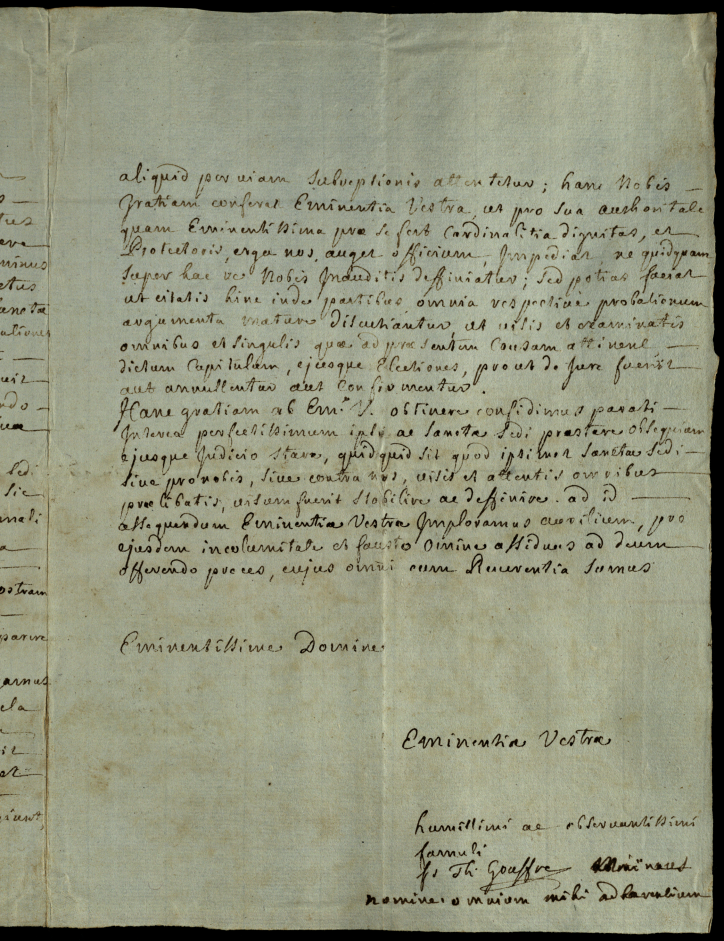 aliquid per viam subreptionis attentetur; hanc Nobis
Gratiam conferet Eminentia Vestra, ut pro sua authoritate
quam Eminentissima præ se fert Cardinalitia dignitas, et
Protectoris, erga nos, auget officium Impediat ne quidquam
super hac re Nobis Inauditis deffiniatur; sed potius faciat
ut citatis hinc inde partibus omnia respective probationum
argumenta mature discutiantur ut visis et examinatis
omnibus et singulis quæ ad præsentem Causam attinent
dictum Capitulum, ejusque Electiones, prout de Jure fuerit
aut annullentur aut Confirmentur.
Hanc gratiam ab Em.ª V. obtinere confidimus parati
Interea perfectissimum ipsi ac sanctæ sedi præstare obsequium
ejusque Judicio stare, quidquid sit quod ipsimet sanctæ sedi
sive pro nobis, sive contra nos, visis et attentis omnibus
prælibatis, visum fuerit stabilire ac deffinire. ad id
assequendum Eminentiæ Vestræ Imploramus auxilium, pro
ejusdem incolumitate et fausto omine assiduas ad deum
offerendo preces, cujus omni cum Reverentia sumus
Eminentissime Domine
Eminentiæ Vestræ
humillimi ac observantissimi
famuli
fs Th. Gouffre
nomine omnium mihi adhærentium